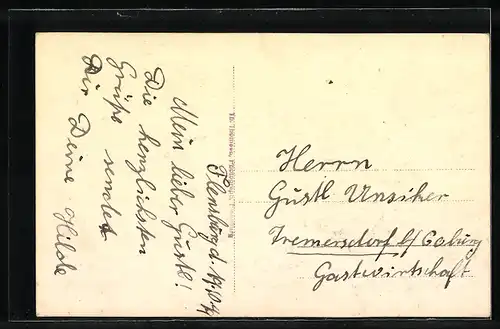 Flensburg d.
Mein lieber Gustl!
Die herzlichsten
Grüße sendet
Dir Deine Hilde
Herrn
Gustl Unsiker
Tremersdorf b/Coburg
Gastwirtschaft